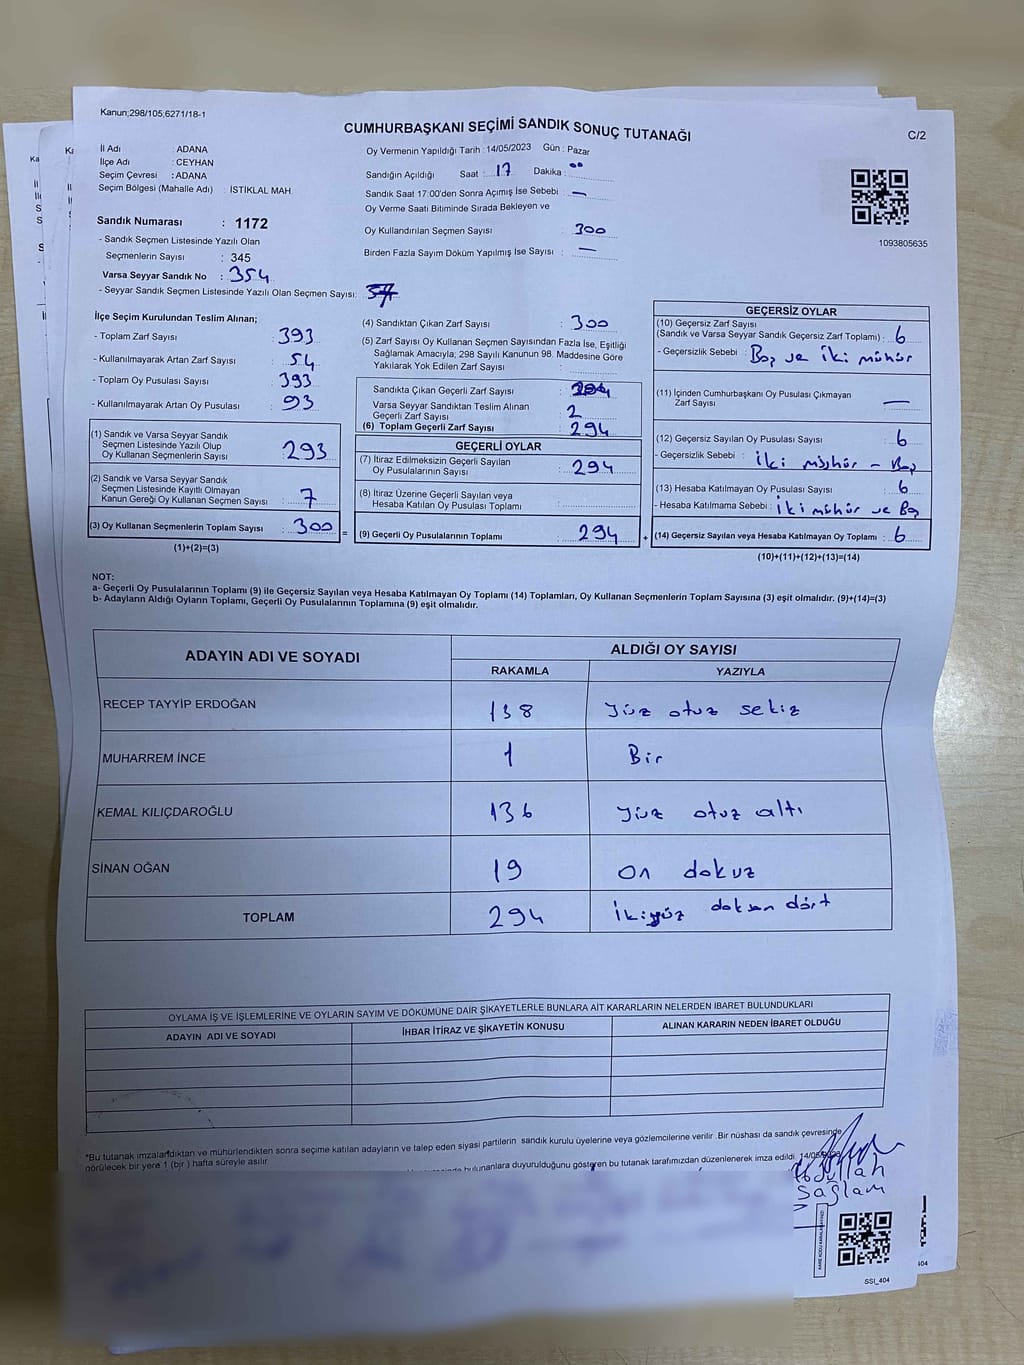 Kanun;298/105;6271/18-1
CUMHURBAŞKANI SEÇİMİ SANDIK SONUÇ TUTANAĞI
C/2
İl Adı : ADANA
İlçe Adı : CEYHAN
Seçim Çevresi : ADANA
Seçim Bölgesi (Mahalle Adı) : İSTİKLAL MAH.
Sandık Numarası : 1172
- Sandık Seçmen Listesinde Yazılı Olan
Seçmenlerin Sayısı : 345
Varsa Seyyar Sandık No : 354
- Seyyar Sandık Seçmen Listesinde Yazılı Olan Seçmen Sayısı:
Oy Vermenin Yapıldığı Tarih : 14/05/2023 Gün : Pazar
Sandığın Açıldığı Saat : 17 Dakika : 00
Sandık Saat 17:00'den Sonra Açımış İse Sebebi : —
Oy Verme Saati Bitiminde Sırada Bekleyen ve
Oy Kullandırılan Seçmen Sayısı : 300
Birden Fazla Sayım Döküm Yapılmış İse Sayısı : —
1093805635
İlçe Seçim Kurulundan Teslim Alınan;
- Toplam Zarf Sayısı : 393
- Kullanılmayarak Artan Zarf Sayısı : 54
- Toplam Oy Pusulası Sayısı : 393
- Kullanılmayarak Artan Oy Pusulası : 93
(1) Sandık ve Varsa Seyyar Sandık
Seçmen Listesinde Yazılı Olup
Oy Kullanan Seçmenlerin Sayısı : 293
(2) Sandık ve Varsa Seyyar Sandık
Seçmen Listesinde Kayıtlı Olmayan
Kanun Gereği Oy Kullanan Seçmen Sayısı : 7
(3) Oy Kullanan Seçmenlerin Toplam Sayısı : 300 =
(1)+(2)=(3)
(4) Sandıktan Çıkan Zarf Sayısı : 300
(5) Zarf Sayısı Oy Kullanan Seçmen Sayısından Fazla İse, Eşitliği
Sağlamak Amacıyla; 298 Sayılı Kanunun 98. Maddesine Göre
Yakılarak Yok Edilen Zarf Sayısı :
Sandıkta Çıkan Geçerli Zarf Sayısı :
Varsa Seyyar Sandıktan Teslim Alınan
Geçerli Zarf Sayısı : 2
(6) Toplam Geçerli Zarf Sayısı : 294
GEÇERLİ OYLAR
(7) İtiraz Edilmeksizin Geçerli Sayılan
Oy Pusulalarının Sayısı : 294
(8) İtiraz Üzerine Geçerli Sayılan veya
Hesaba Katılan Oy Pusulası Toplamı :
(9) Geçerli Oy Pusulalarının Toplamı : 294 +
GEÇERSİZ OYLAR
(10) Geçersiz Zarf Sayısı
(Sandık ve Varsa Seyyar Sandık Geçersiz Zarf Toplamı) : 6
- Geçersizlik Sebebi : Boş ve iki mühür
(11) İçinden Cumhurbaşkanı Oy Pusulası Çıkmayan
Zarf Sayısı : —
(12) Geçersiz Sayılan Oy Pusulası Sayısı : 6
- Geçersizlik Sebebi : iki mühür - Boş
(13) Hesaba Katılmayan Oy Pusulası Sayısı : 6
- Hesaba Katılmama Sebebi : iki mühür ve Boş
(14) Geçersiz Sayılan veya Hesaba Katılmayan Oy Toplamı : 6
(10)+(11)+(12)+(13)=(14)
NOT:
a- Geçerli Oy Pusulalarının Toplamı (9) ile Geçersiz Sayılan veya Hesaba Katılmayan Oy Toplamı (14) Toplamları, Oy Kullanan Seçmenlerin Toplam Sayısına (3) eşit olmalıdır. (9)+(14)=(3)
b- Adayların Aldığı Oyların Toplamı, Geçerli Oy Pusulalarının Toplamına (9) eşit olmalıdır.
ADAYIN ADI VE SOYADI
ALDIĞI OY SAYISI
RAKAMLA YAZIYLA
RECEP TAYYİP ERDOĞAN 138 Yüz otuz sekiz
MUHARREM İNCE 1 Bir
KEMAL KILIÇDAROĞLU 136 Yüz otuz altı
SİNAN OĞAN 19 on dokuz
TOPLAM 294 ikiyüz doksan dört
OYLAMA İŞ VE İŞLEMLERİNE VE OYLARIN SAYIM VE DÖKÜMÜNE DAİR ŞİKAYETLERLE BUNLARA AİT KARARLARIN NELERDEN İBARET BULUNDUKLARI
ADAYIN ADI VE SOYADI İHBAR İTİRAZ VE ŞİKAYETİN KONUSU ALINAN KARARIN NEDEN İBARET OLDUĞU
*Bu tutanak imzalandıktan ve mühürlendikten sonra seçime katılan adayların ve talep eden siyasi partilerin sandık kurulu üyelerine veya gözlemcilerine verilir .Bir nüshası da sandık çevresinde
görülecek bir yere 1 (bir ) hafta süreyle asılır
bulunanlara duyurulduğunu gösteren bu tutanak tarafımızdan düzenlenerek imza edildi.
Abdullah
Sağlam
SSI_404